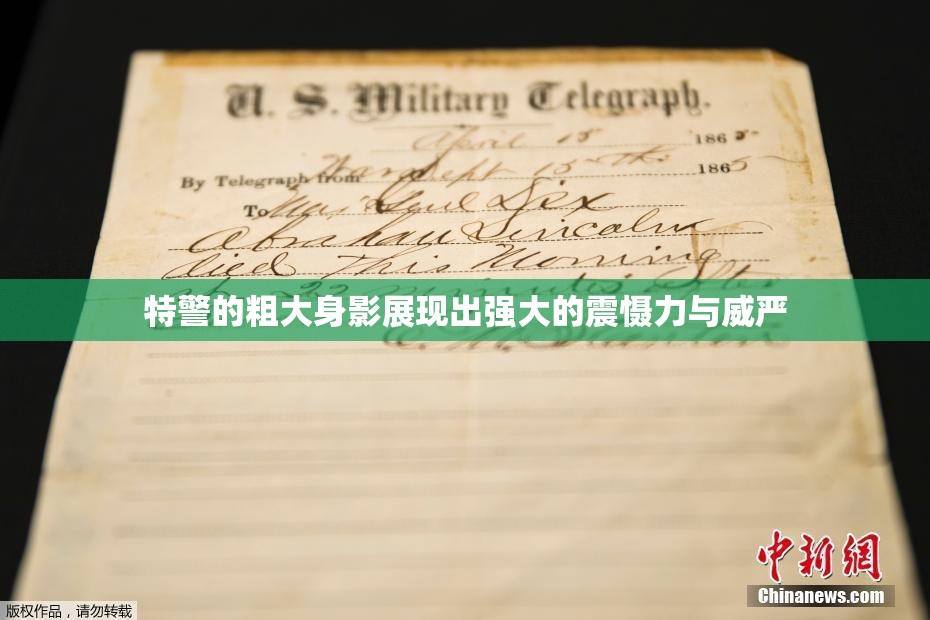 U. S. Military Telegraph.
April 15 1865
By Telegraph from War Dept 15th 1865
To Maj Genl Dix
Abraham Lincoln
died This Morning
22 minutes after
特警的粗大身影展现出强大的震慑力与威严
E. M. Stanton
中新网
Chinanews.com
版权作品,请勿转载